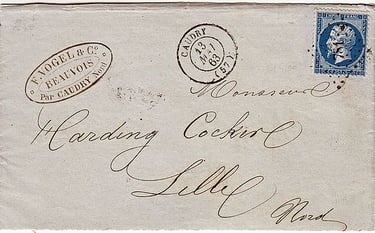 F. VOGEL & Cº
BEAUVOIS
Par CAUDRY Nord
CAUDRY
13
MAI
63
(57)
EMPIRE FRANC.
Monsieur
Harding Cocker
Lille
Nord